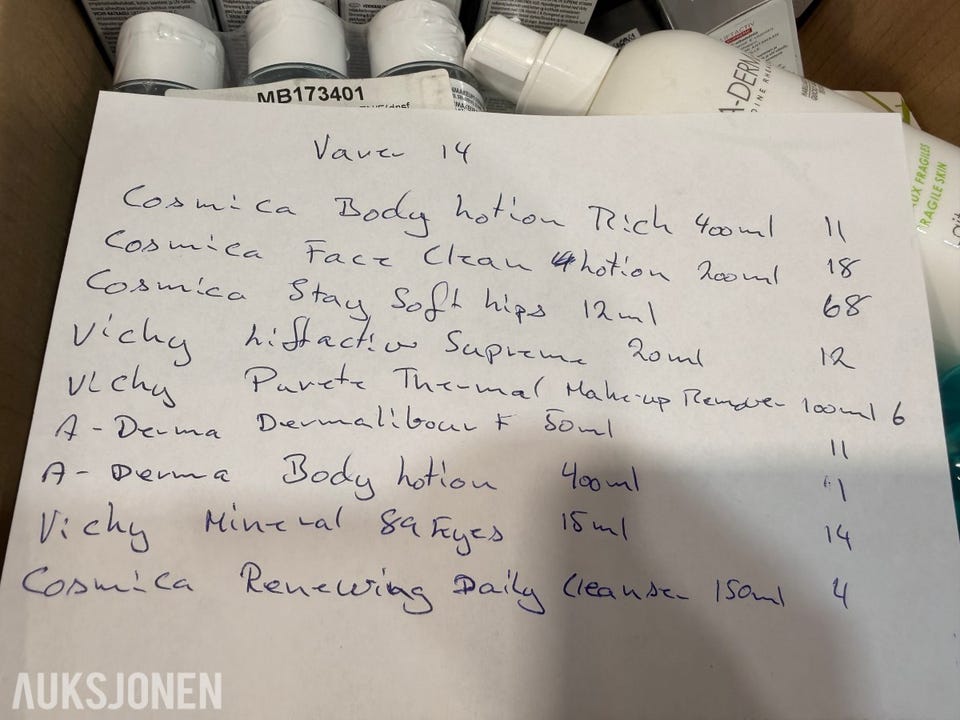 MB173401
A-DERMA
LIFTACTIV
UX FRAGILES
FRAGILE SKIN
Varer 14
Cosmica Body Lotion Rich 400ml 11
Cosmica Face Clean Lotion 200ml 18
Cosmica Stay Soft Lips 12ml 68
Vichy Liftactiv Supreme 20ml 12
Vichy Purete Thermal Make-up Remover 100ml 6
A-Derma Dermalibour + 50ml 11
A-Derma Body Lotion 400ml 1
Vichy Mineral 89 Eyes 15ml 14
Cosmica Renewing Daily Cleanser 150ml 4
AUKSJONEN